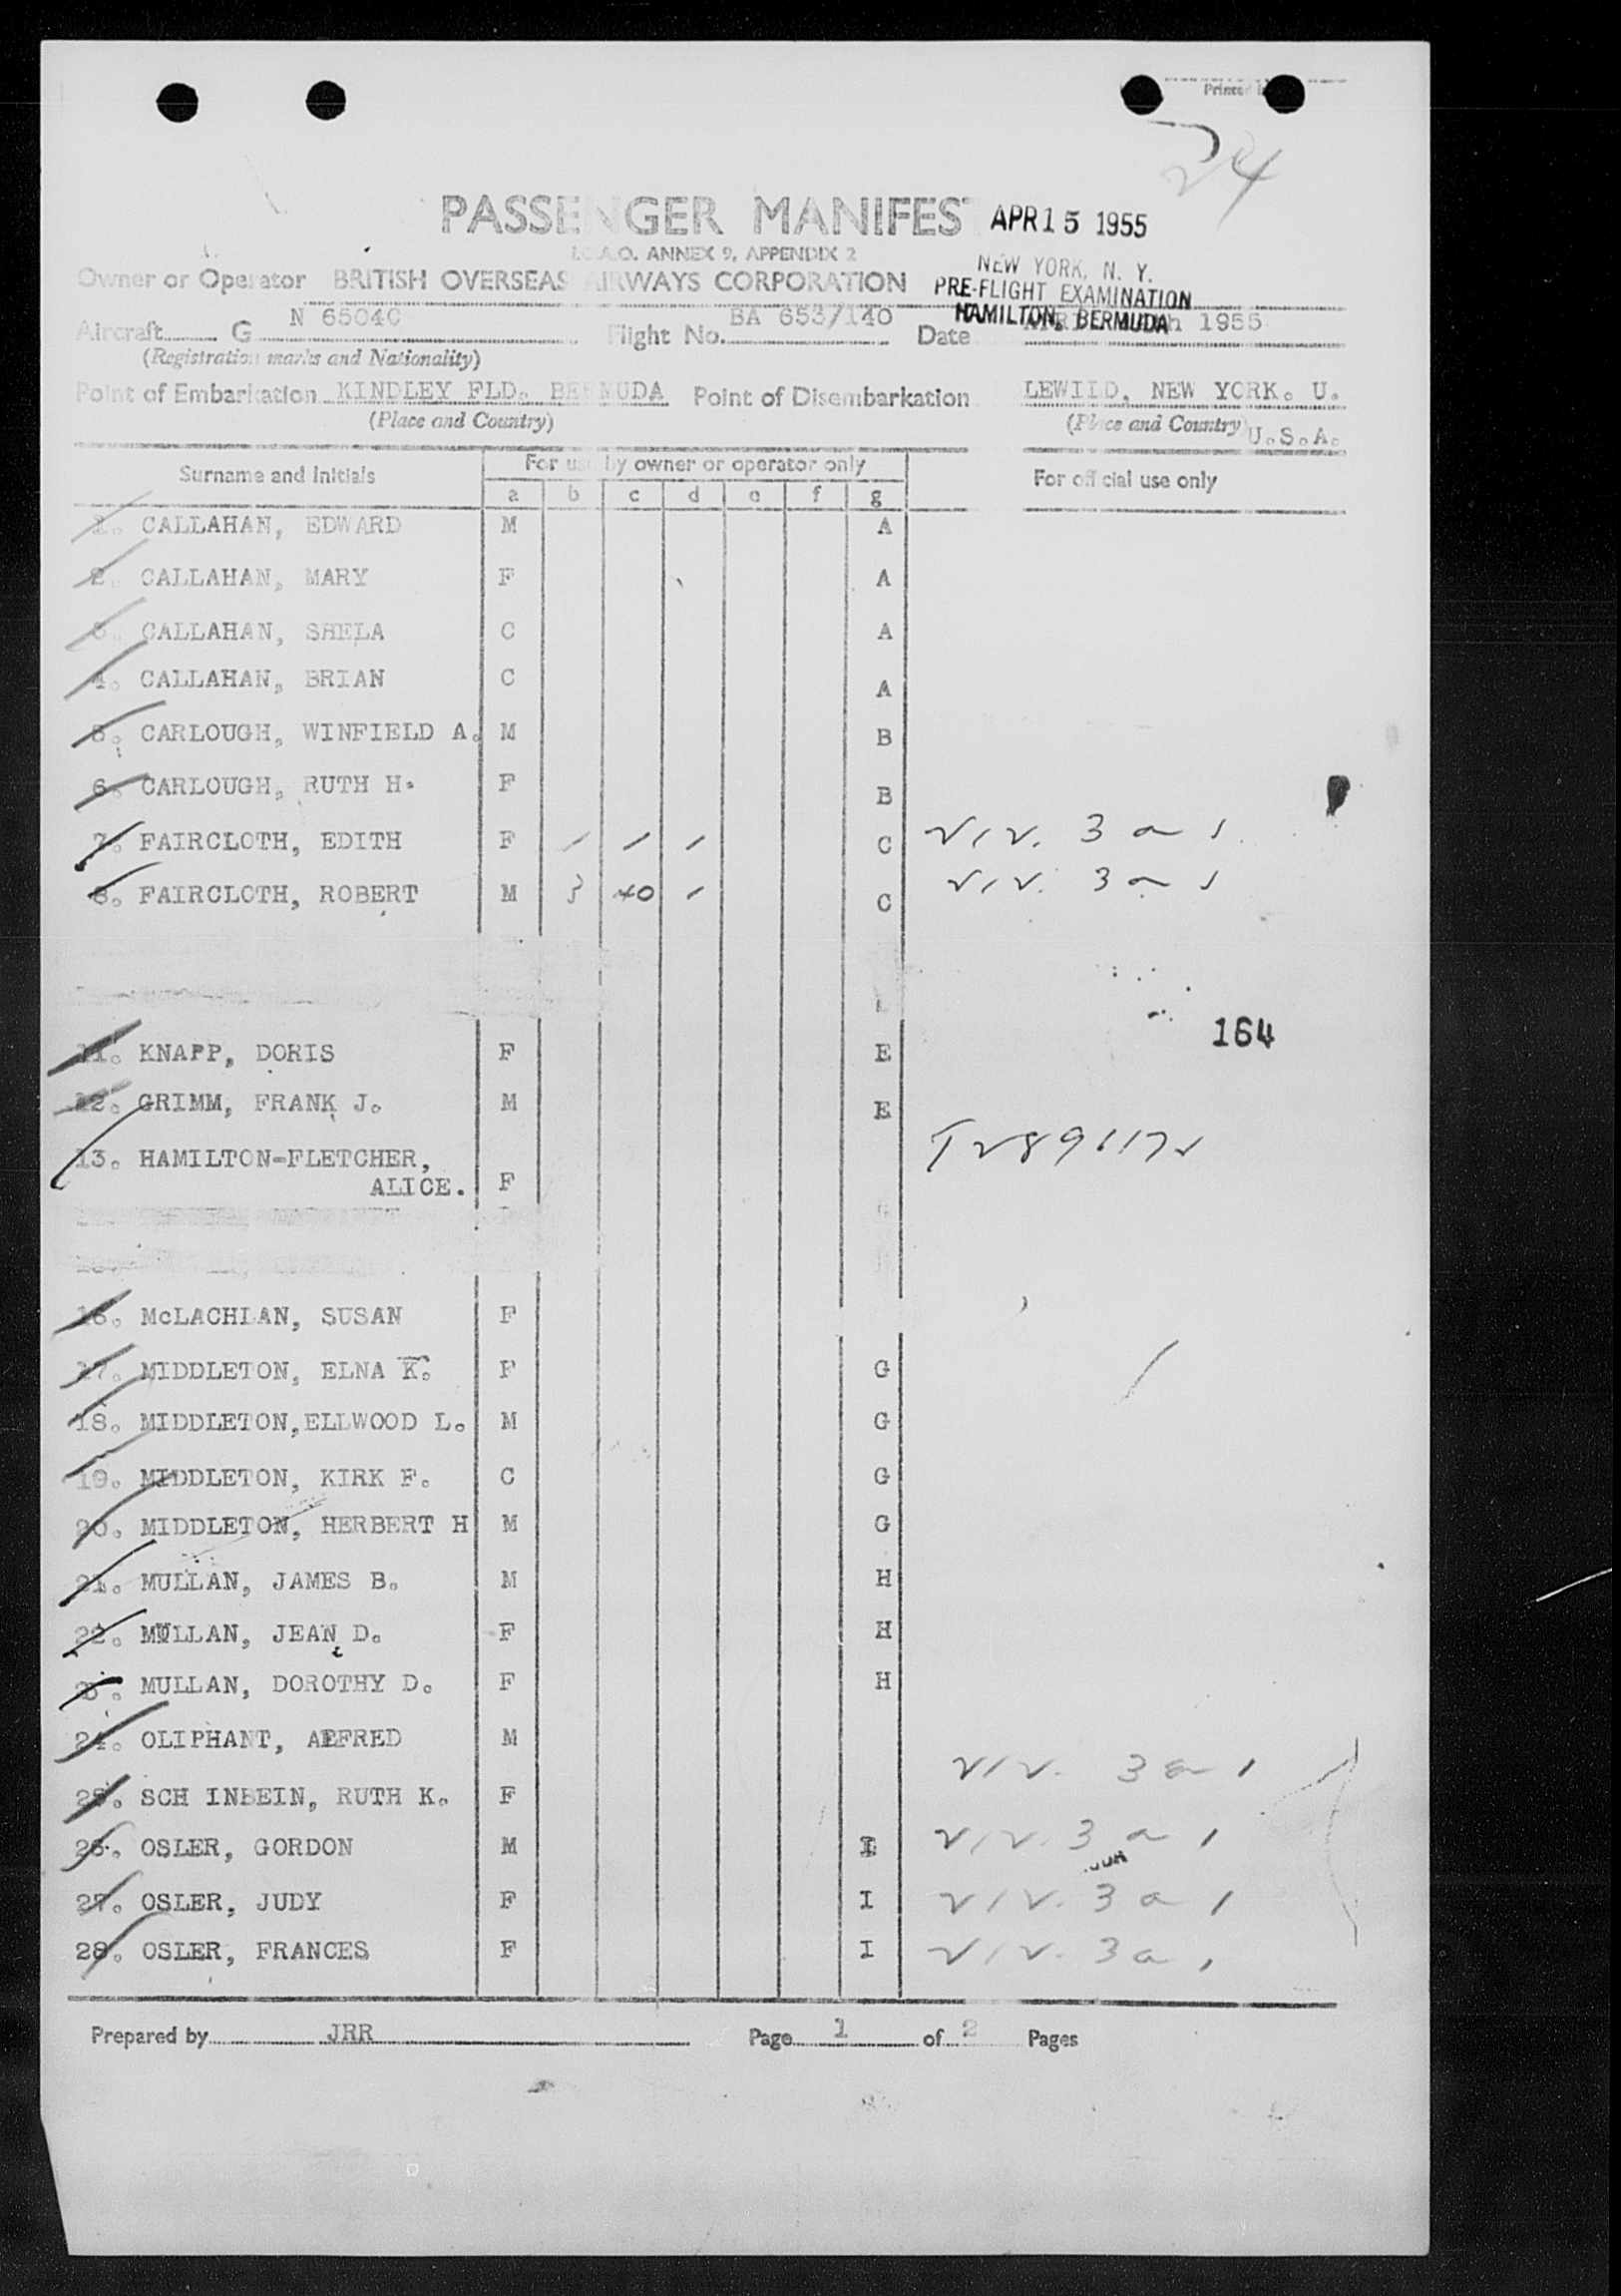 Printed
24
PASSENGER MANIFEST
APR 15 1955
I.C.A.O. ANNEX 9, APPENDIX 2
NEW YORK, N. Y.
Owner or Operator BRITISH OVERSEAS AIRWAYS CORPORATION
PRE-FLIGHT EXAMINATION
HAMILTON, BERMUDA
Aircraft G N 6504C Flight No. BA 653/140 Date 1955
(Registration marks and Nationality)
Point of Embarkation KINDLEY FLD. BERMUDA Point of Disembarkation LEWILD, NEW YORK. U.
(Place and Country) (Place and Country) U.S.A.
Surname and Initials For use by owner or operator only For official use only
a b c d e f g
1. CALLAHAN, EDWARD M A
2. CALLAHAN, MARY F A
3. CALLAHAN, SHELA C A
4. CALLAHAN, BRIAN C A
5. CARLOUGH, WINFIELD A. M B
6. CARLOUGH, RUTH H. F B
7. FAIRCLOTH, EDITH F / / / C VIV. 3 a 1
8. FAIRCLOTH, ROBERT M 40 / C VIV. 3 a 1
164
11. KNAPP, DORIS F E
12. GRIMM, FRANK J. M E
13. HAMILTON-FLETCHER,
ALICE. F
16. McLACHLAN, SUSAN F
17. MIDDLETON, ELNA K. F G
18. MIDDLETON, ELLWOOD L. M G
19. MIDDLETON, KIRK F. C G
20. MIDDLETON, HERBERT H M G
21. MULLAN, JAMES B. M H
22. MULLAN, JEAN D. F H
23. MULLAN, DOROTHY D. F H
24. OLIPHANT, ALFRED M
VIV. 3 a 1
25. SCH INBEIN, RUTH K. F
26. OSLER, GORDON M I VIV. 3 a 1
27. OSLER, JUDY F I VIV. 3 a 1
28. OSLER, FRANCES F I VIV. 3 a 1
Prepared by JRR Page 1 of 2 Pages